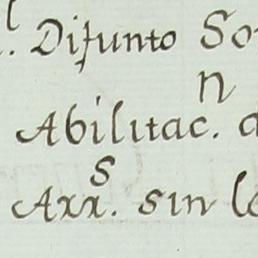 Difunto So
Abilitac.n
Arx.s sin